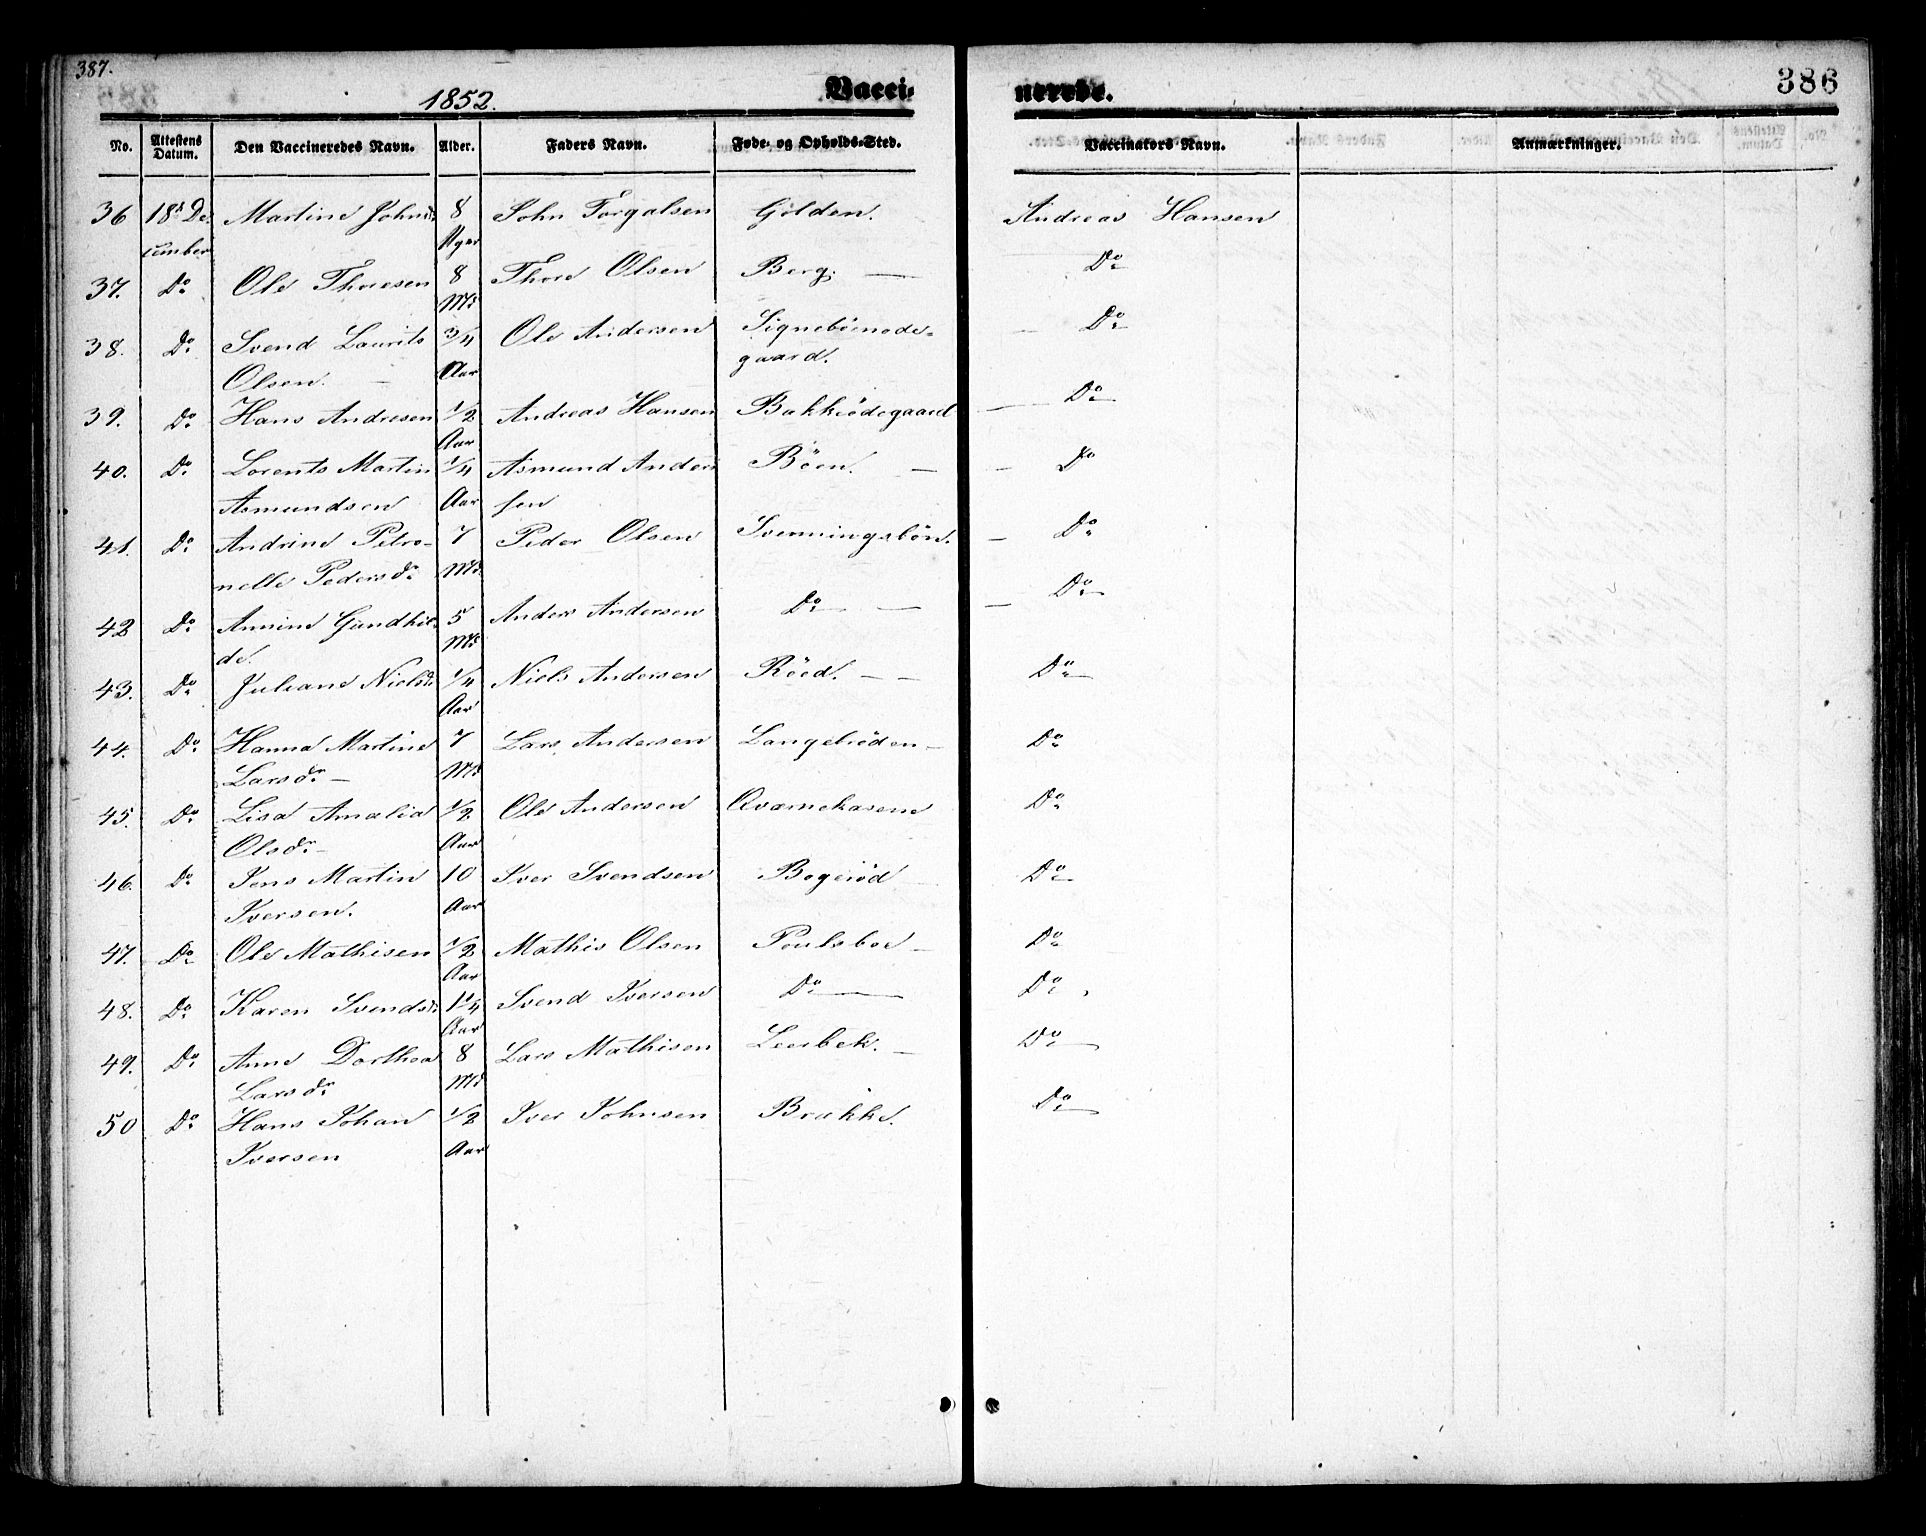 387.
1852.
Vacci-
nerede.
386
No.
Attestens Datum.
Den Vaccineredes Navn.
Alder.
Faders Navn.
Føde- og Opholds-Sted.
Vaccinators Navn.
Anmærkninger.
36 18de De- Martine Johnsdr 8 John Torgalsen Golden. Andreas Hansen
cember Uger
37. Do Ole Thoresen 8 Thore Olsen Berg. — Do
Md
38. Do Svend Laurits 3/4 Ole Andersen Signeböenöde- — Do
Olsen. — Aar gaard.
39. Do Hans Andresen 1/2 Andreas Hansen Bakkeödegaard — Do
Aar
40. Do Lorents Martin 1/4 AsmundAnder Böen. — — Do
Asmundsen Aar sen
41. Do Andrine Petro- 7 Peder Olsen Svenningsböen. — Do
nelle Pedersdr Md.
42 Do Annine Gundhil- 5 Anders Andersen Do — — Do
de. Md
43. Do Juliane Nielsdr 1/4 Niels Andersen Röed. — — Do
Aar
44. Do Hanna Martine 7 Lars Andersen Langeröden — Do
Larsdr — Md
45. Do Lisa Amalia 1/2 Ole Andersen Qvarnekasene Do
Olsdr — Aar
46. Do Jens Martin 10 Iver Svendsen Bogeröd Do
Iversen. Aar
47. Do Ole Mathisen 1/2 Mathis Olsen Poulsboe — Do
Aar
48. Do Karen Svendsdr 1 1/4 Svend Iversen Do — Do
Aar
49. Do Anne Dorthea 8 Lars Mathisen Leerbek. — Do
Larsdr Md
50 Do Hans Johan 1/2 Iver Johnsen Brække. Do
Iversen Aar